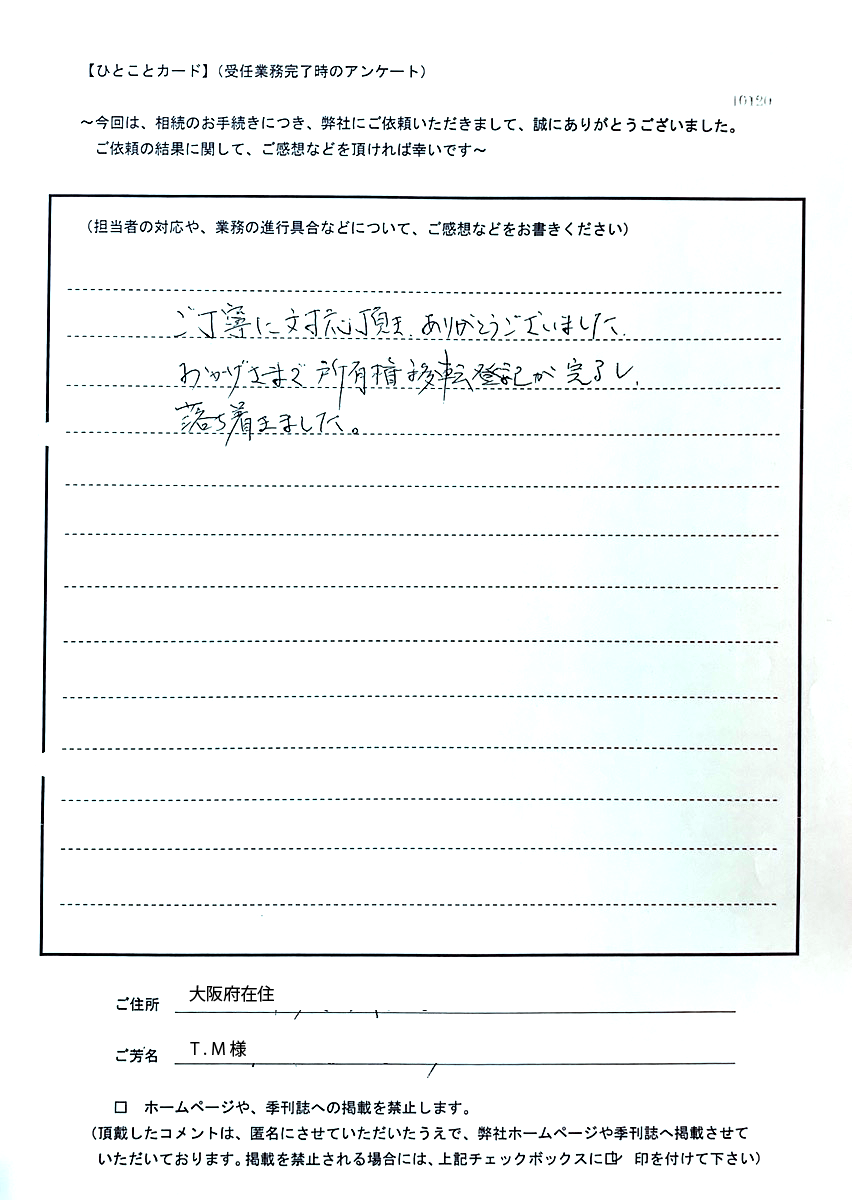 【ひとことカード】（受任業務完了時のアンケート）
16120
～今回は、相続のお手続きにつき、弊社にご依頼いただきまして、誠にありがとうございました。
ご依頼の結果に関して、ご感想などを頂ければ幸いです～
（担当者の対応や、業務の進行具合などについて、ご感想などをお書きください）
ご丁寧に対応頂き、ありがとうございました。
おかげさまで所有権移転登記が完了し、
落ち着きました。
ご住所 大阪府在住
ご芳名 T.M様
□ ホームページや、季刊誌への掲載を禁止します。
（頂戴したコメントは、匿名にさせていただいたうえで、弊社ホームページや季刊誌へ掲載させて
いただいております。掲載を禁止される場合には、上記チェックボックスに☑ 印を付けて下さい）